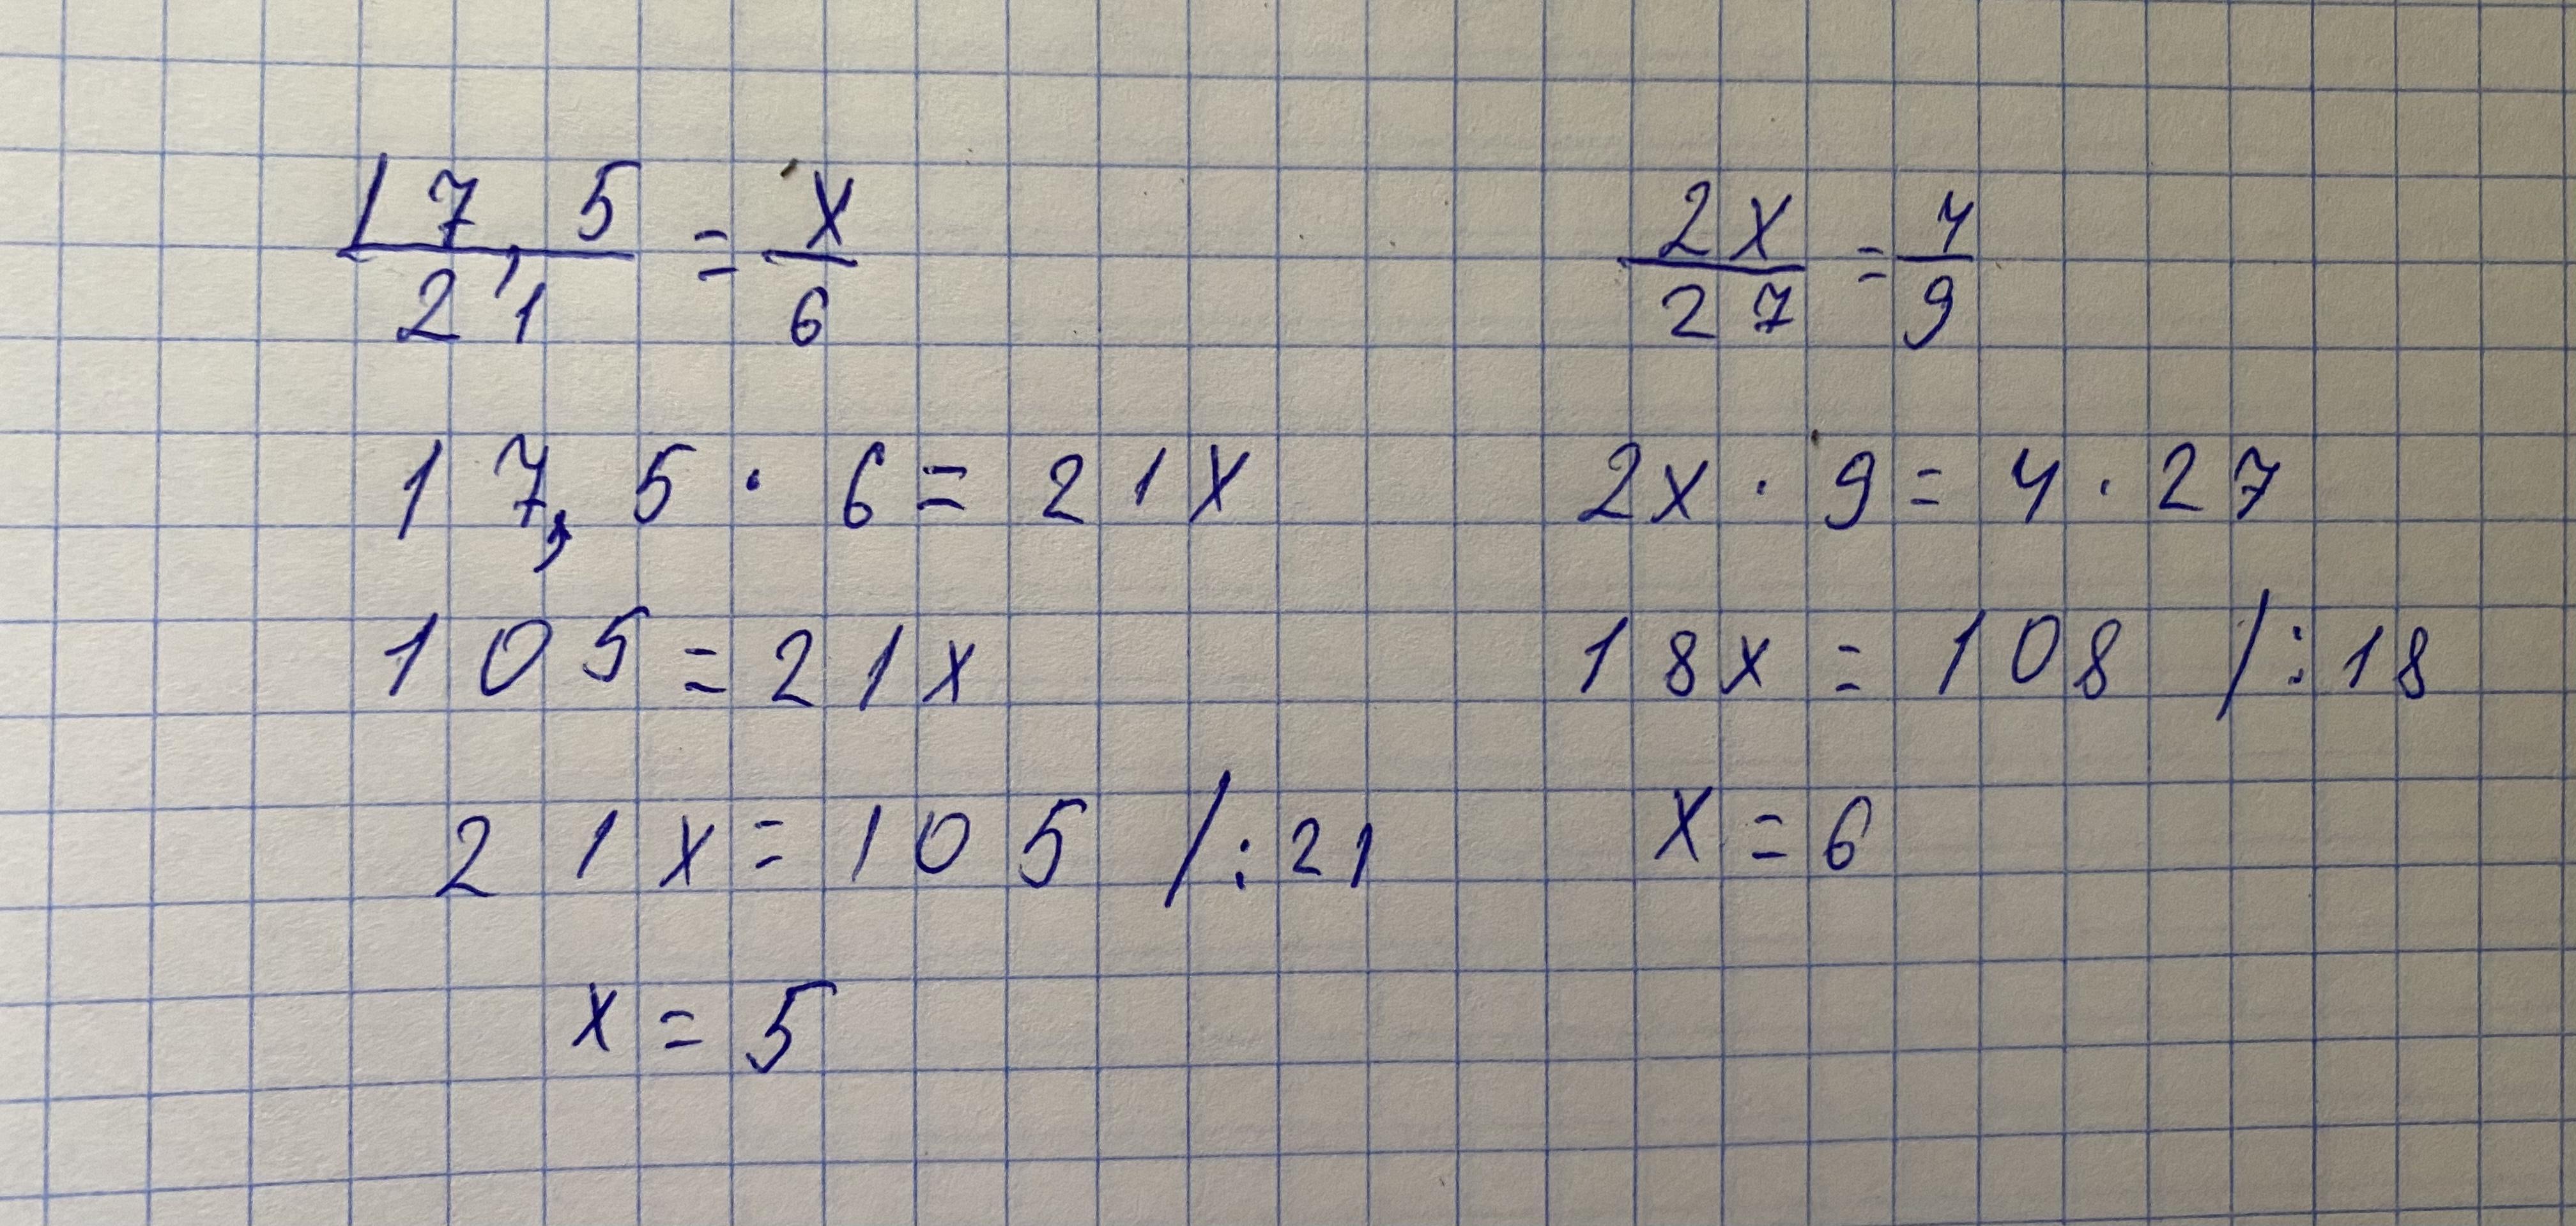 17,5/21 = x/6
17,5 · 6 = 21x
105 = 21x
21x = 105 /:21
x = 5
2x/27 = 4/9
2x · 9 = 4 · 27
18x = 108 /:18
x = 6